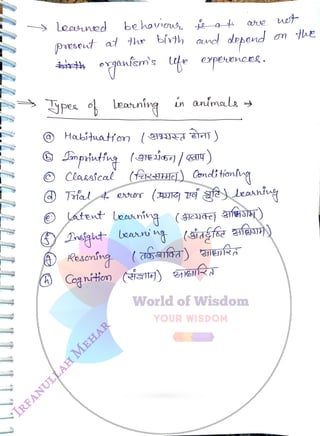 → Learned behaviour is not are not
present at the birth and depend on the
birth organism's life experiences.
→ Types of Learning in animals →
ⓐ Habituation (अभ्यस्त होना)
ⓑ Imprinting (अध्यंकन / छाप)
ⓒ Classical (चिरसम्मत) Conditioning
ⓓ Trial & error (प्रयास एवं त्रुटि) learning
ⓔ Latent Learning (अव्यक्त अधिगम)
ⓕ Insight Learning (अंतर्दृष्टि अधिगम)
ⓖ Resoning (तर्कशक्ति) आधारित
ⓗ Cognition (संज्ञान) आधारित
World of Wisdom
YOUR WISDOM
IRFANULLAH MEHAR